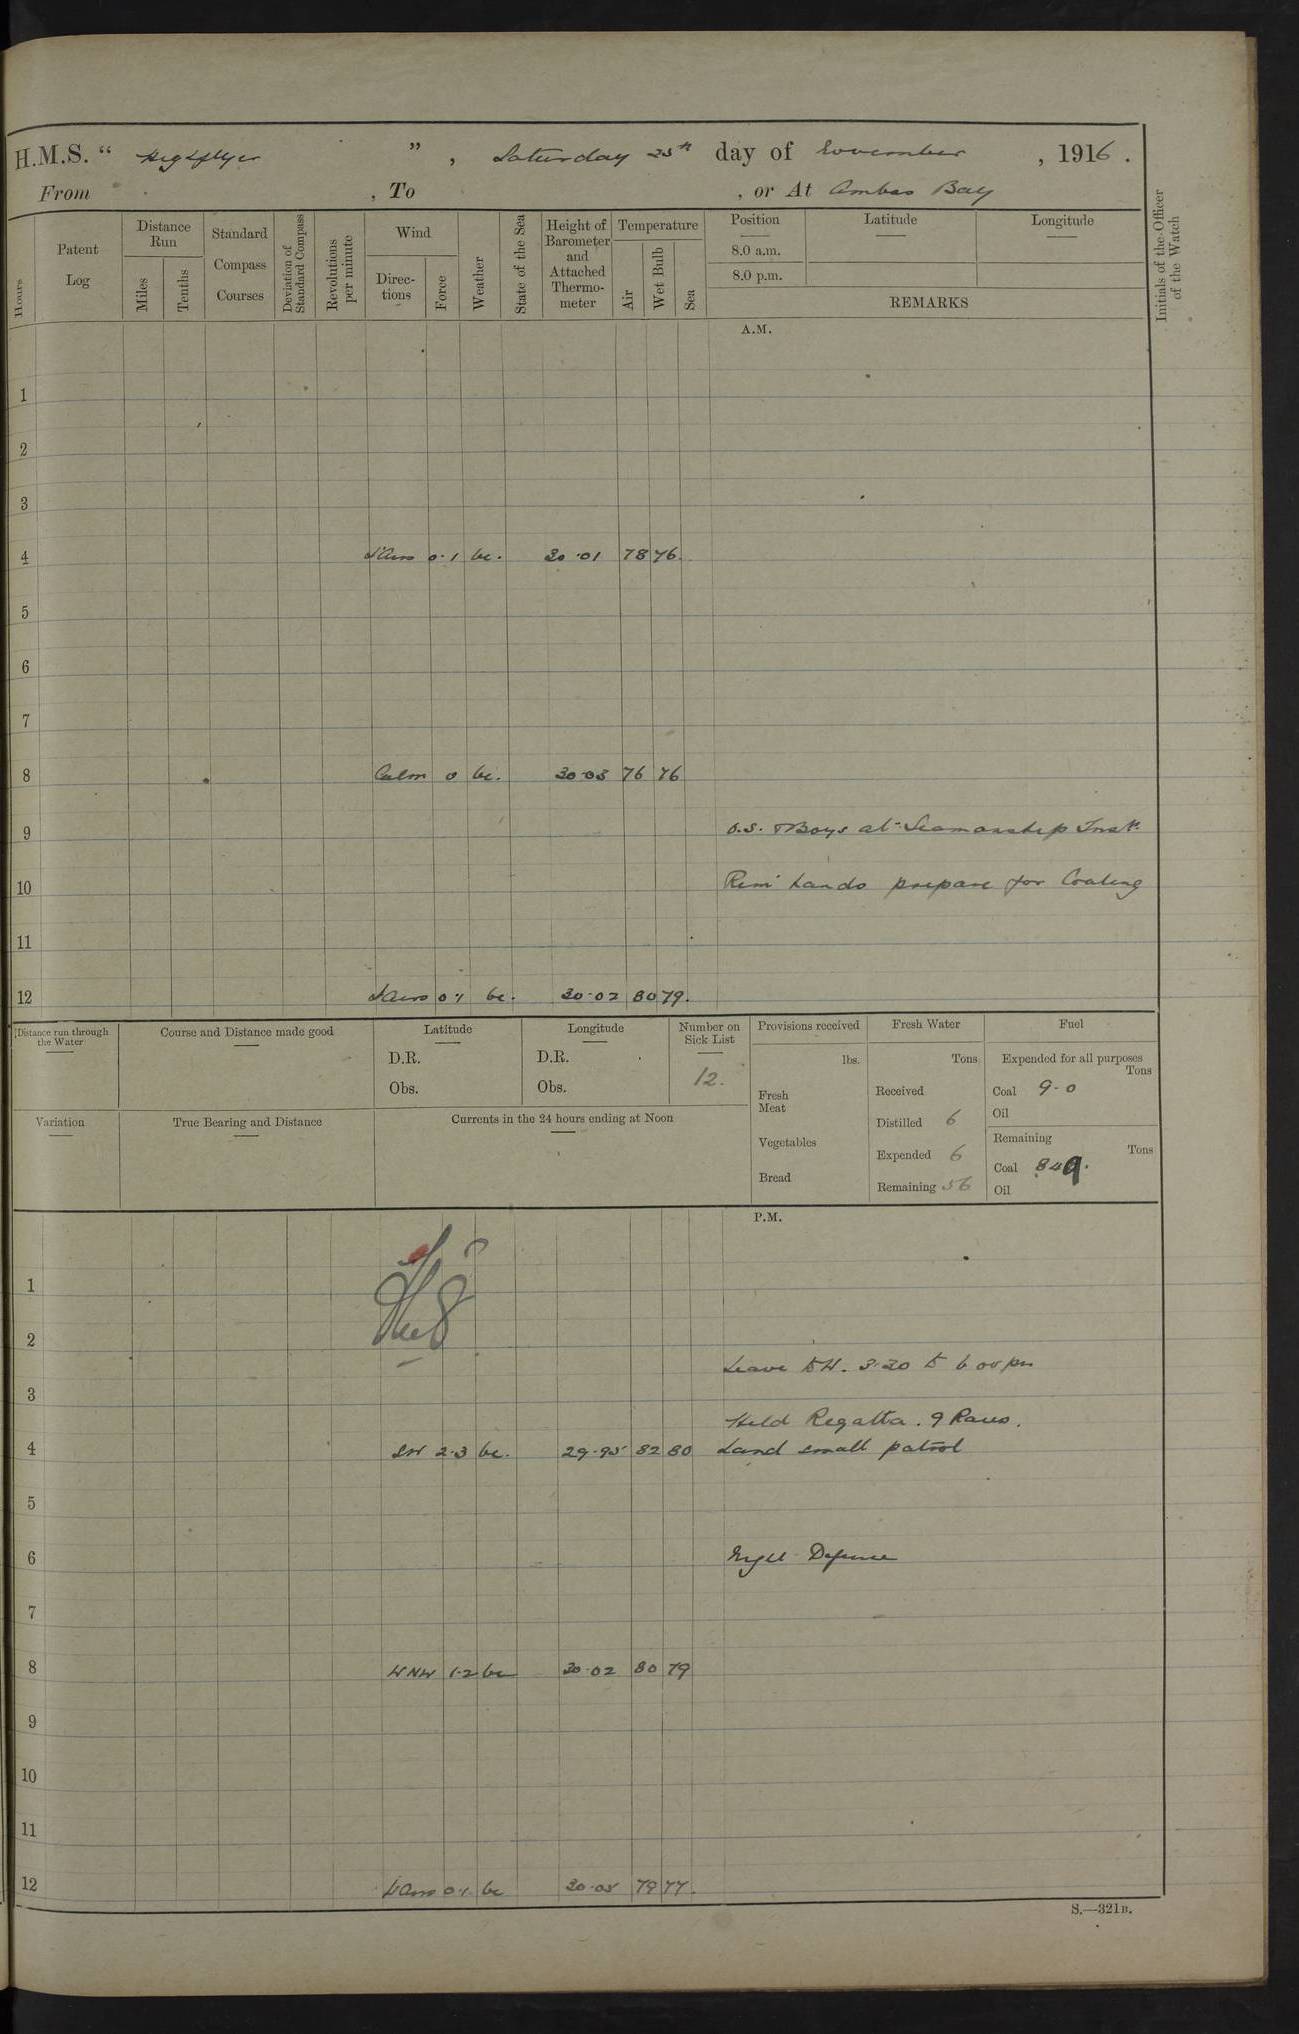 H.M.S. “ Highflyer ” , Saturday 25th day of November , 1916 .
From , To , or At Ambas Bay
Hours
Patent Log
Distance Run
Miles
Tenths
Standard Compass Courses
Deviation of Standard Compass
Revolutions per minute
Wind
Directions
Force
Weather
State of the Sea
Height of Barometer and Attached Thermometer
Temperature
Air
Wet Bulb
Sea
Position
8.0 a.m.
8.0 p.m.
Latitude
Longitude
REMARKS
Initials of the Officer of the Watch
A.M.
1
2
3
4 0·1 bc. 30·01 78 76.
5
6
7
8 Calm 0 bc. 30·03 76 76
9 O.S. & Boys at Seamanship Instn.
10 Rem' hands prepare for Coaling
11
12 0·1 bc. 30·02 80 79.
Distance run through the Water
Course and Distance made good
Latitude
D.R.
Obs.
Longitude
D.R.
Obs.
Number on Sick List
12.
Provisions received
lbs.
Fresh Meat
Vegetables
Bread
Fresh Water
Tons
Received
Distilled 6
Expended 6
Remaining 56
Fuel
Expended for all purposes
Tons
Coal 9·0
Oil
Remaining
Tons
Coal 849.
Oil
Variation
True Bearing and Distance
Currents in the 24 hours ending at Noon
P.M.
1
2
Leave to W. 3·30 to 6 00 pm
3
Held Regatta. 9 Races.
4 SW 2·3 bc. 29·95 82 80 Land small patrol
5
6 Night Defence
7
8 WNW 1·2 bc 30·02 80 79
9
10
11
12 0·1 bc 30·05 79 77.
S.—321B.